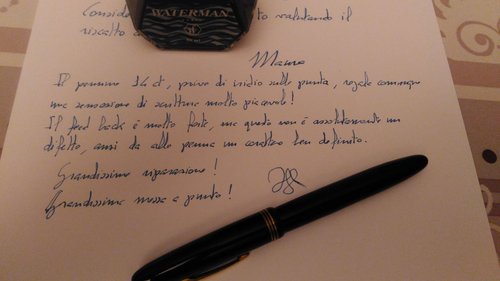 WATERMAN
valutando il
riscatto
Mauro
Il pennino 14 ct, privo di iridio sulla punta, regala comunque
una sensazione di scrittura molto piacevole!
Il feed back è molto forte, ma questo non è assolutamente un
difetto, anzi da alla penna un carattere ben definito.
Grandissima riparazione!
Grandissima messa a punto!